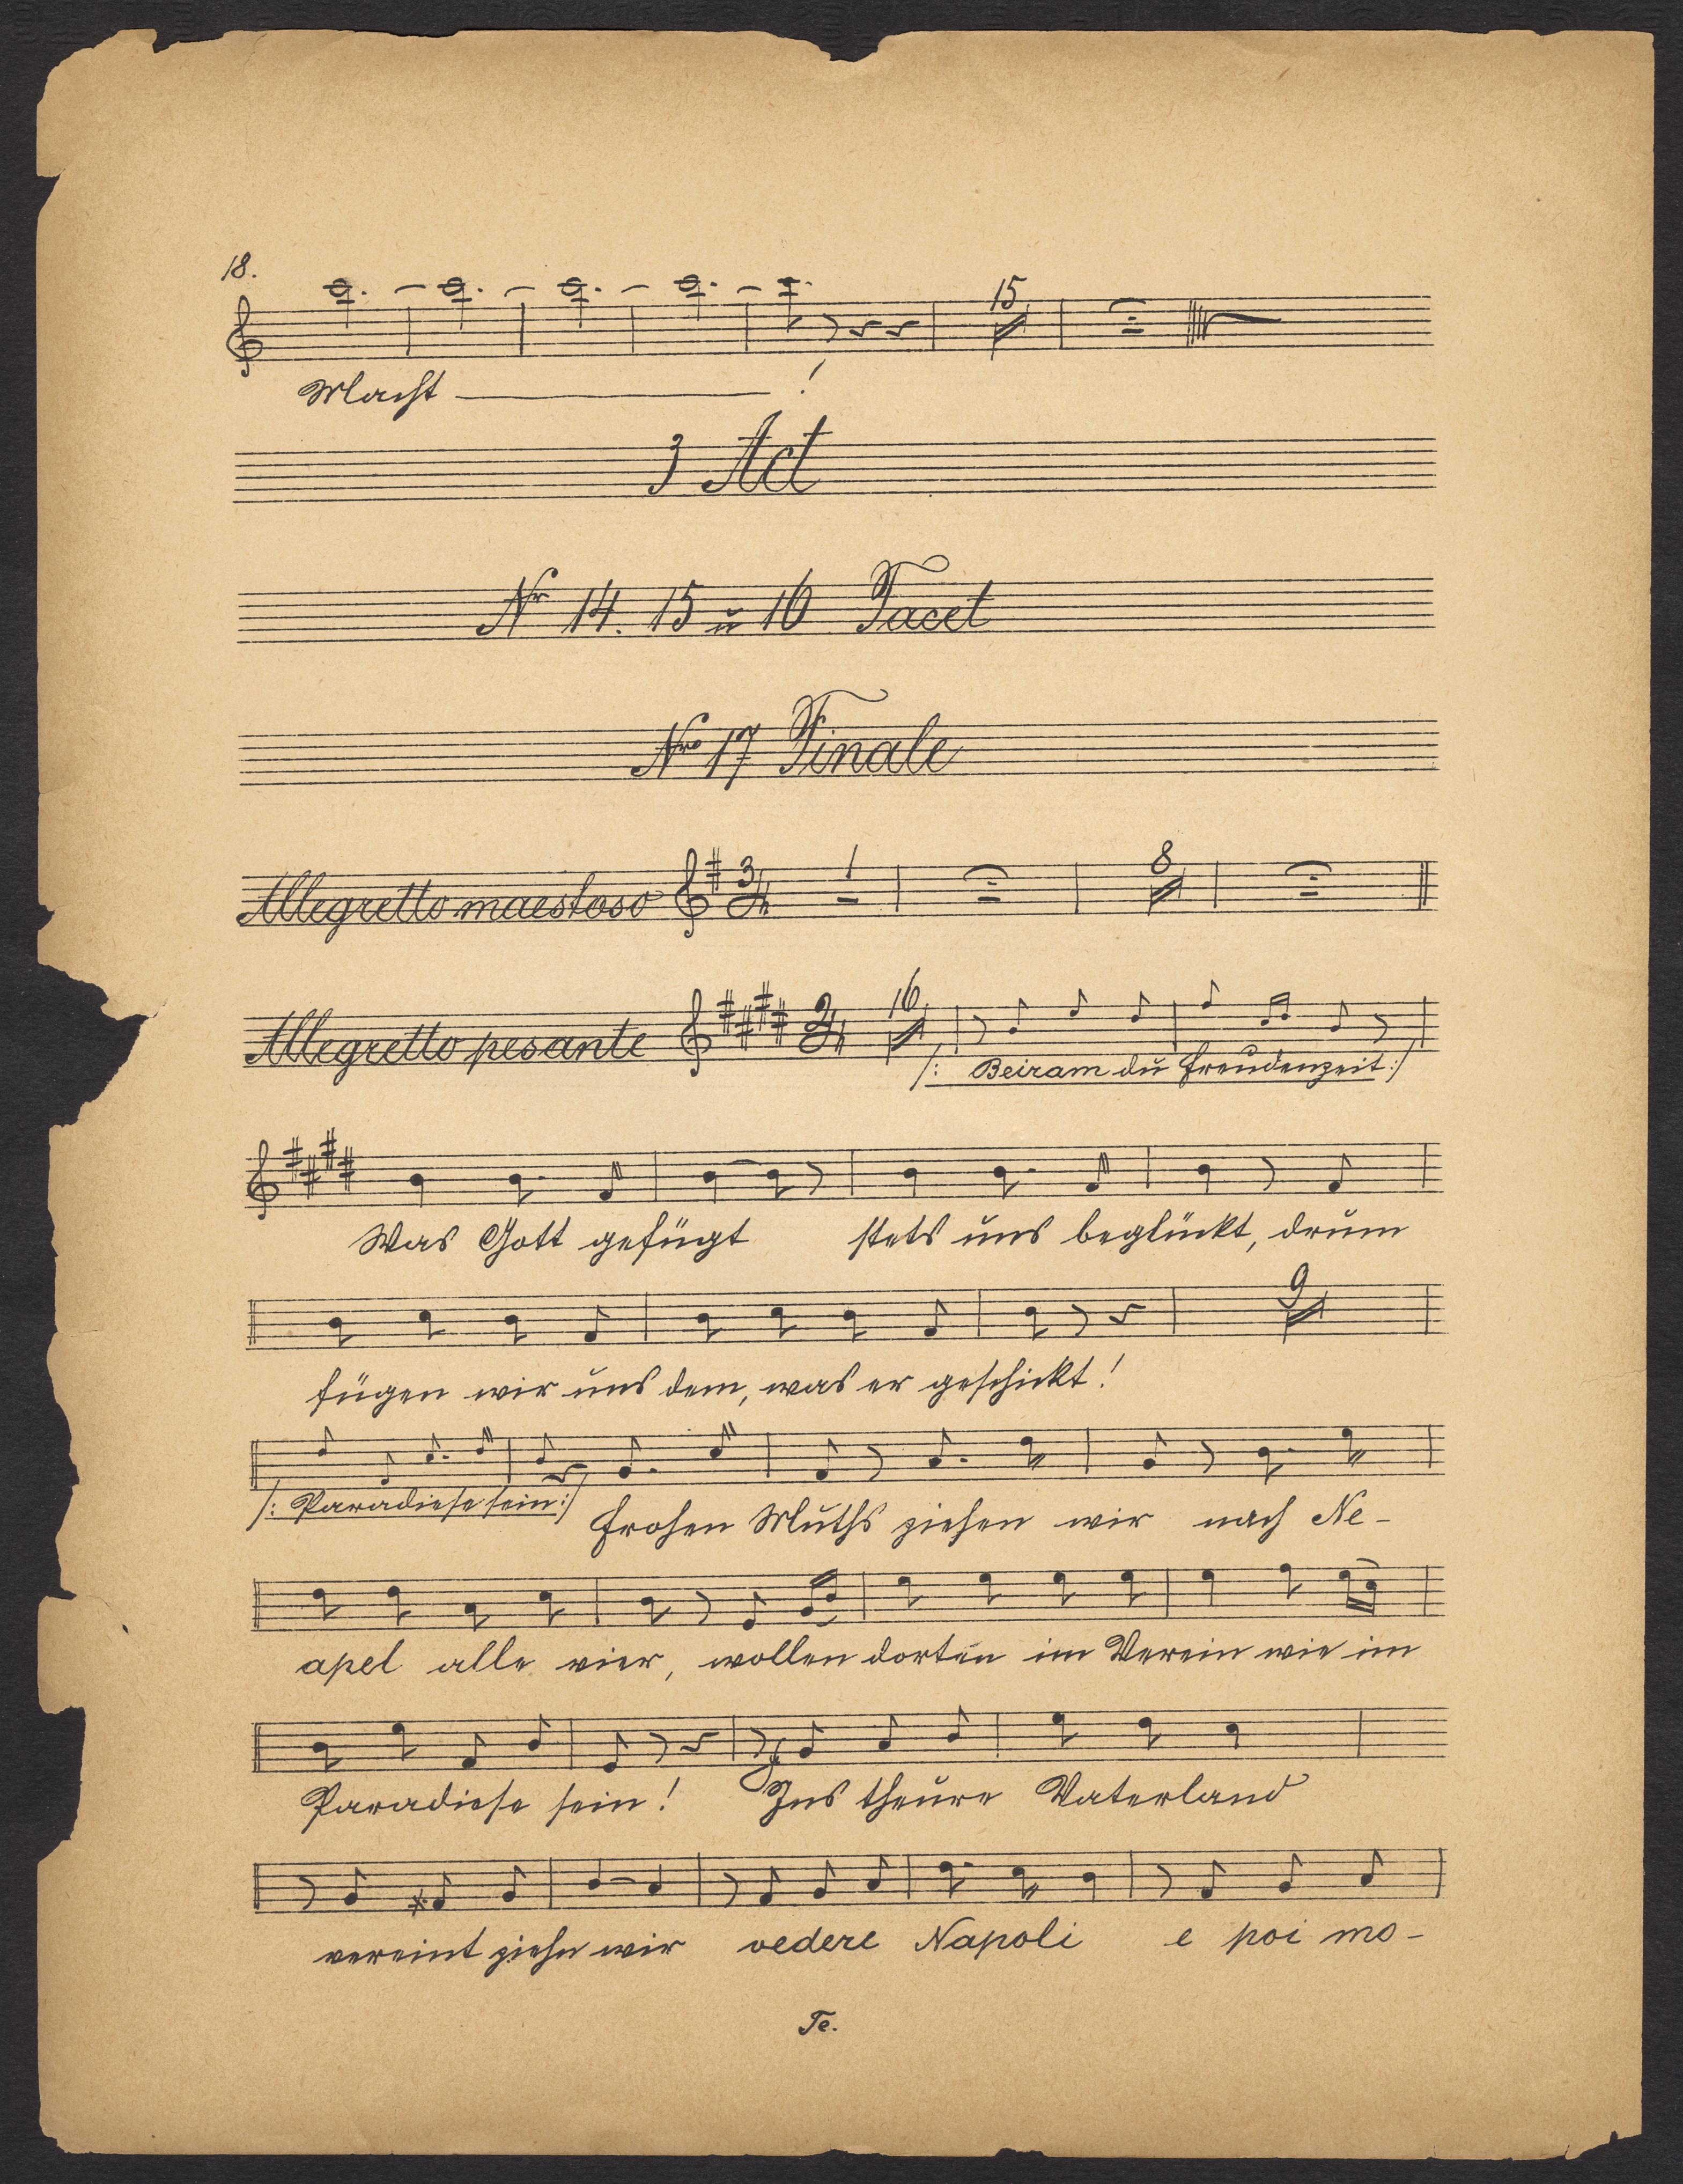 18.
15
Macht !
3 Act
Nr 14. 15 u 16 Tacet
Nro 17 Finale
Allegretto maestoso 3/4 1 8
Allegretto pesante 2/4 16
/: Beiram du Freudenzeit :/
Was Gott gefügt stets uns beglückt, drum
9
fügen wir uns dem, was er geschickt!
/: Paradiese sein :/ Frohen Muths ziehen wir nach Ne-
apel alle vier, wollen dorten im Verein wie im
Paradiese sein! Ins theure Vaterland
vereint ziehn wir vedere Napoli e poi mo-
Te.